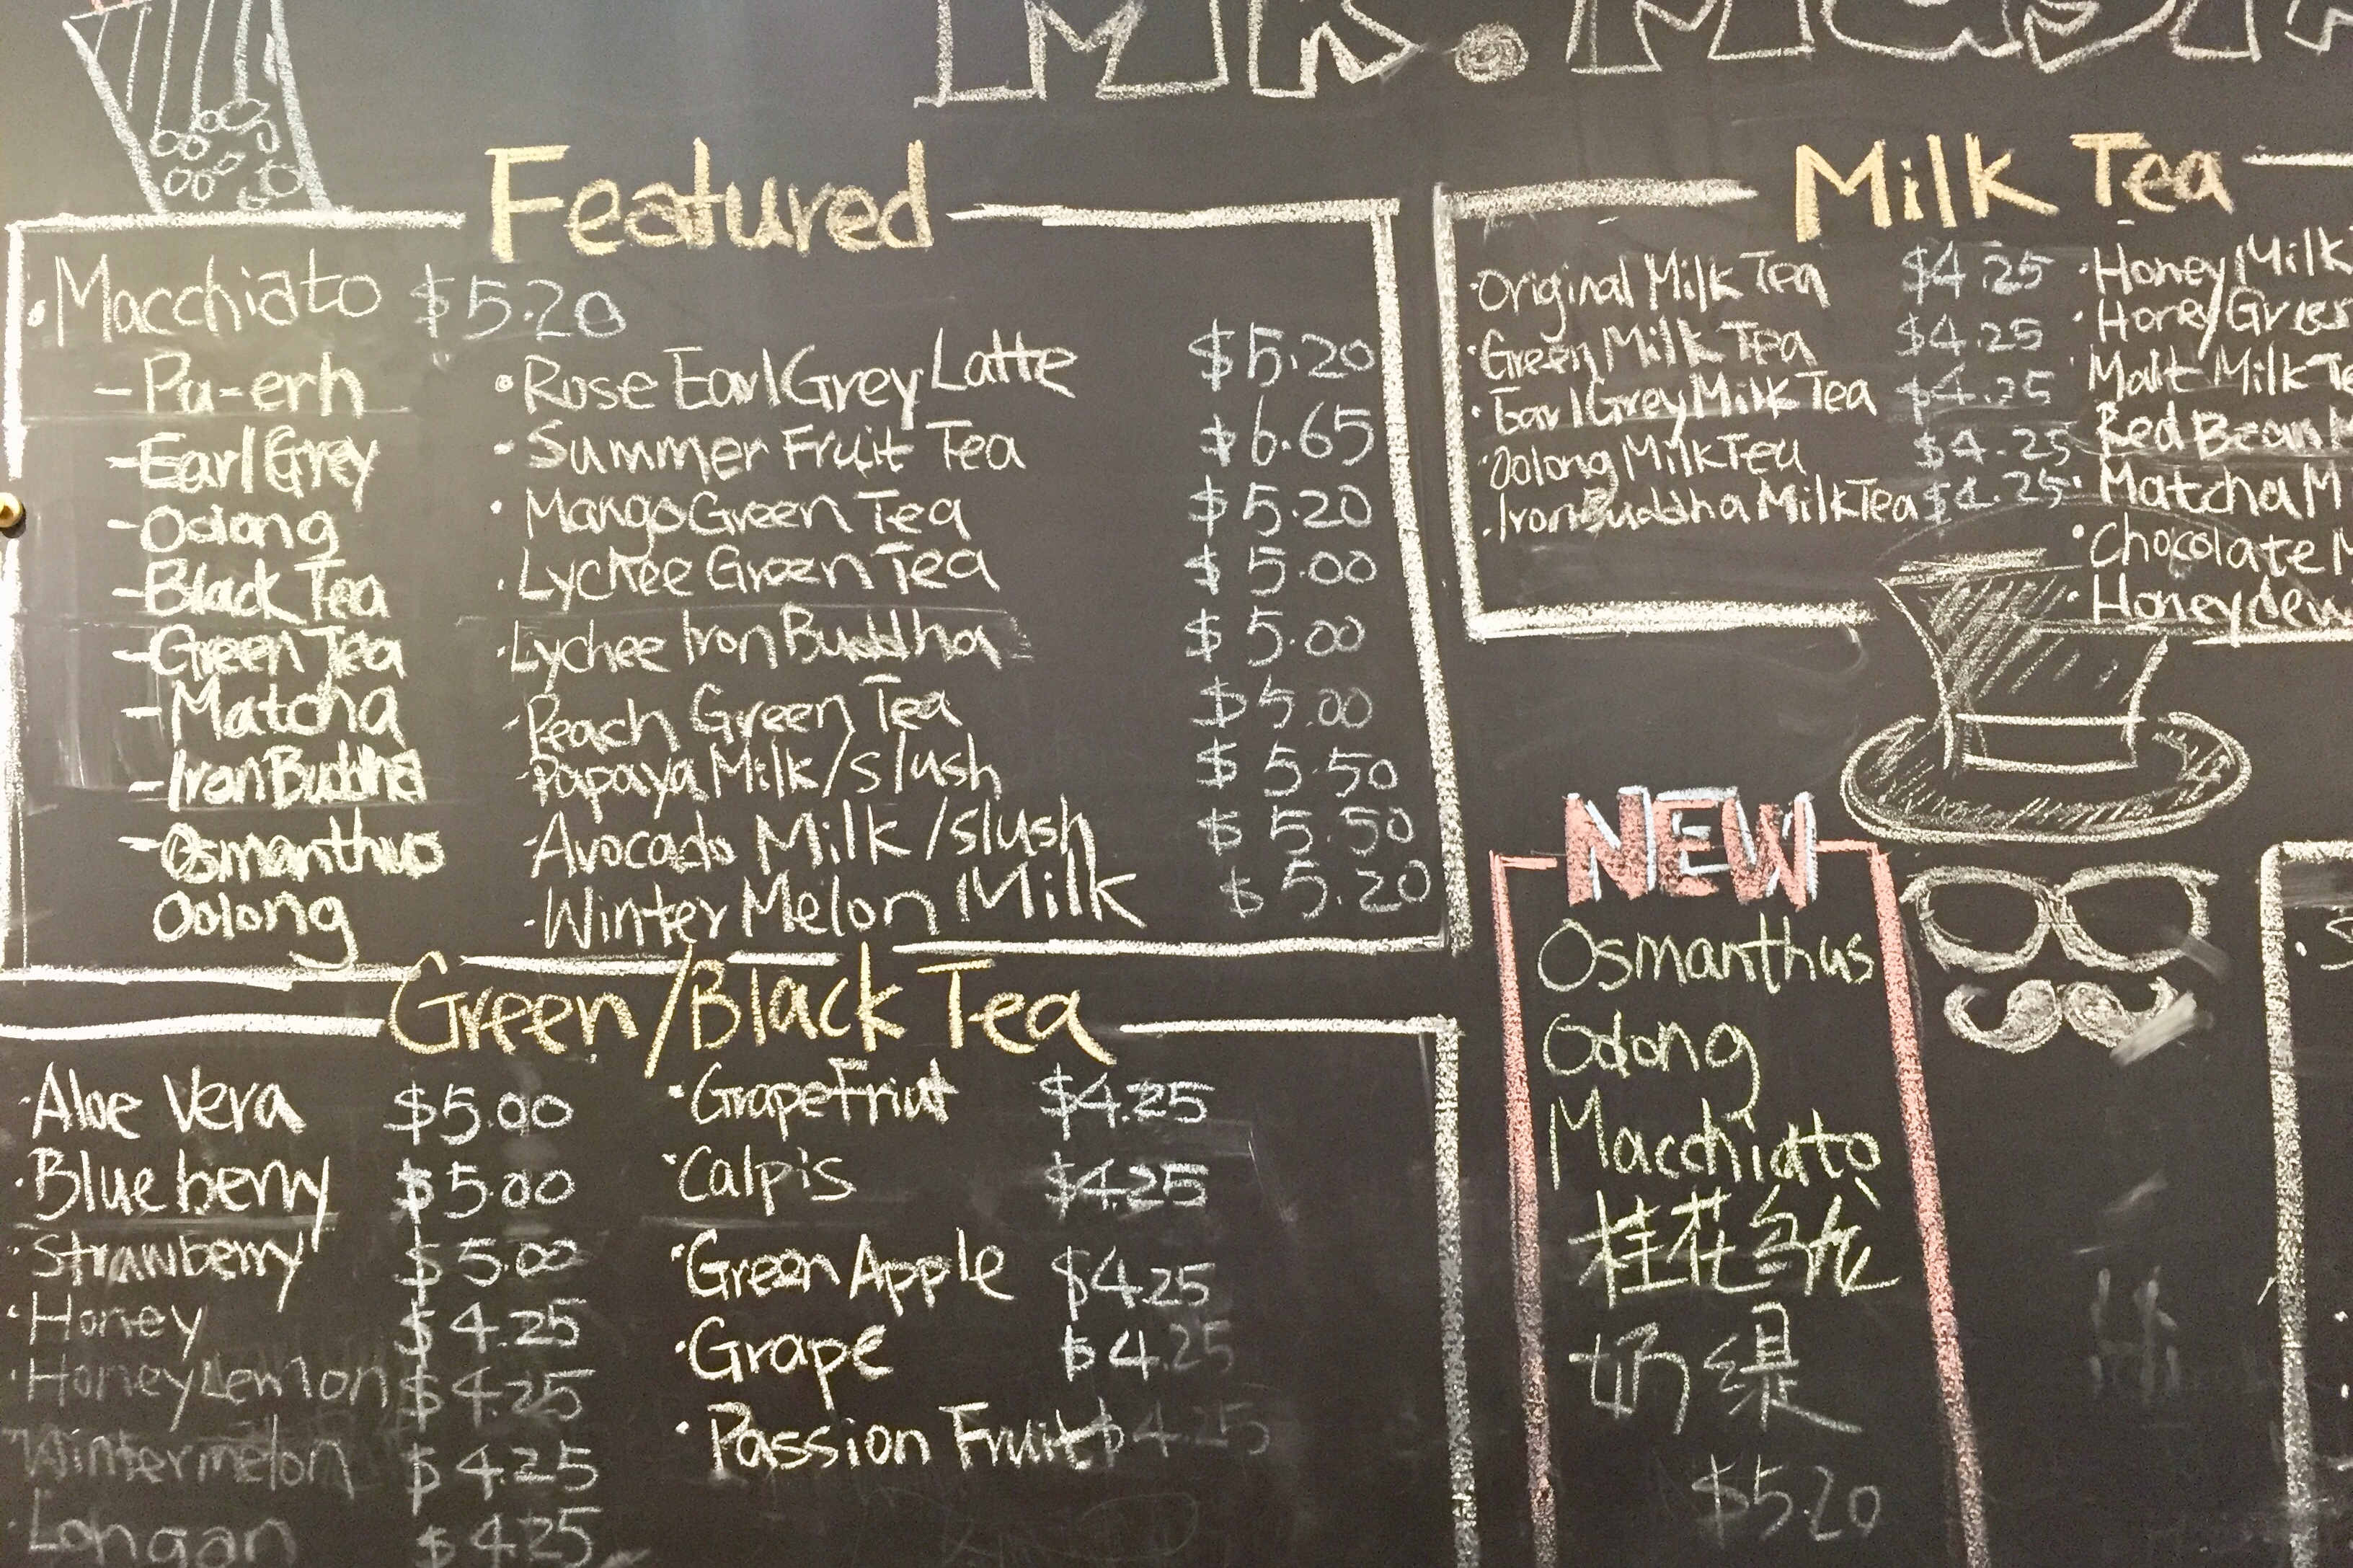 MR.
Featured
• Macchiato $5.20
- Pu-erh
- Earl Grey
- Oolong
- Black Tea
- Green Tea
- Matcha
- Iron Buddha
- Osmanthus
Oolong
• Rose Earl Grey Latte $5.20
• Summer Fruit Tea $6.65
• Mango Green Tea $5.20
• Lychee Green Tea $5.00
• Lychee Iron Buddha $5.00
• Peach Green Tea $5.00
• Papaya Milk/slush $5.50
• Avocado Milk/slush $5.50
• Winter Melon Milk $5.20
Milk Tea
• Original Milk Tea $4.25
• Green Milk Tea $4.25
• Earl Grey Milk Tea $4.25
• Oolong Milk Tea $4.25
• Iron Buddha Milk Tea $4.25
• Honey Milk
• Honey Green
Malt Milk Te
Red Bean M
• Matcha M
• Chocolate M
• Honeydew
Green/Black Tea
• Aloe Vera $5.00
• Blueberry $5.00
• Strawberry $5.00
• Honey $4.25
• Honey Lemon $4.25
• Wintermelon $4.25
• Longan $4.25
• GrapeFriut $4.25
• Calpis $4.25
• Green Apple $4.25
• Grape $4.25
• Passion Fruit $4.25
NEW
Osmanthus
Oolong
Macchiato
桂花乌龙
奶缇
$5.20